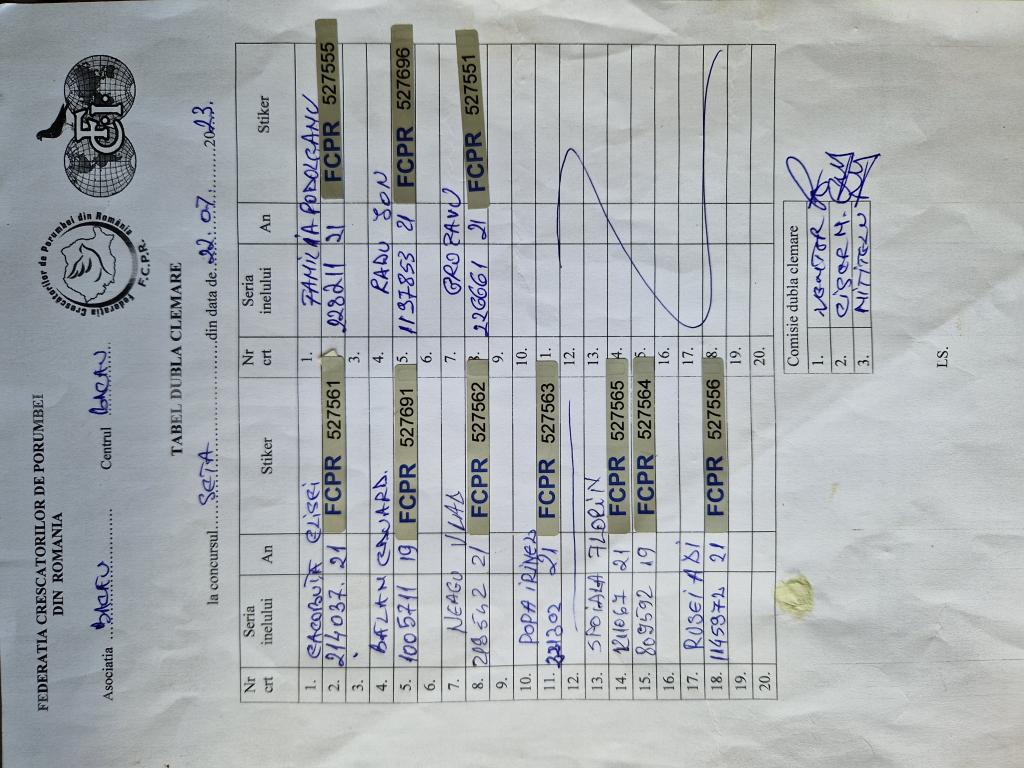 FEDERATIA CRESCATORILOR DE PORUMBEI
DIN ROMANIA
Federatia Crescatorilor de Porumbei din România
F.C.P.R.
F.C.I.
Asociatia BACAU Centrul BACAU
TABEL DUBLA CLEMARE
la concursul SETA din data de 22.07.2023.
Nr crt Seria inelului An Stiker
1. CACORUITA ELISEI
2. 214037. 21 FCPR 527561
3.
4. BALAN EDUARD
5. 1005711 19 FCPR 527691
6.
7. NEAGU VLAD
8. 218542 21 FCPR 527562
9.
10. POPA IRINEL
11. 221302 21 FCPR 527563
12.
13. SPOIALA FLORIN
14. 1211067 21 FCPR 527565
15. 809592 19 FCPR 527564
16.
17. RUSEI ADI
18. 1145972 21 FCPR 527556
19.
20.
Nr crt Seria inelului An Stiker
1. FAMILIA PODOLEANU
228211 21 FCPR 527555
3.
4. RADU ION
5. 1137853 21 FCPR 527696
6.
7. GROZAVU
8. 226661 21 FCPR 527551
9.
10.
1.
12.
13.
4.
5.
16.
17.
8.
19.
20.
Comisie dubla clemare
1.
2. CISER M.
3.
LS.